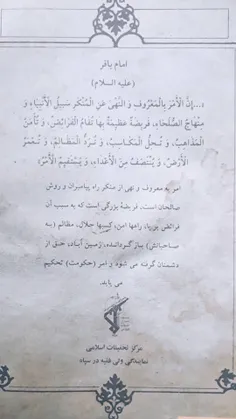 امام باقر
(علیه السلام)
«... إنَّ الْأَمْرَ بِالْمَعْرُوفِ وَ النَّهْیَ عَنِ الْمُنْكَرِ سَبِیلُ الْأَنْبِیَاءِ وَ
مِنْهَاجُ الصُّلَحَاءِ، فَرِیضَةٌ عَظِیمَةٌ بِهَا تُقَامُ الْفَرَائِضُ، وَ تَأْمَنُ
الْمَذَاهِبُ، وَ تَحِلُّ الْمَكَاسِبُ، وَ تُرَدُّ الْمَظَالِمُ، وَ تُعْمَرُ
الْأَرْضُ، وَ یُنْتَصَفُ مِنَ الْأَعْدَاءِ، وَ یَسْتَقِیمُ الْأَمْرُ»
امر به معروف و نهی از منکر راه پیامبران و روش
صالحان است، فریضهٔ بزرگی است که به سبب آن
فرائض برپا، راهها امن، کسبها حلال، مظالم (به
صاحبانش) بازگردانده، زمین آباد، حق از
دشمنان گرفته می شود و امر (حکومت) تحکیم
می یابد.
مرکز تحقیقات اسلامی
نمایندگی ولی فقیه در سپاه